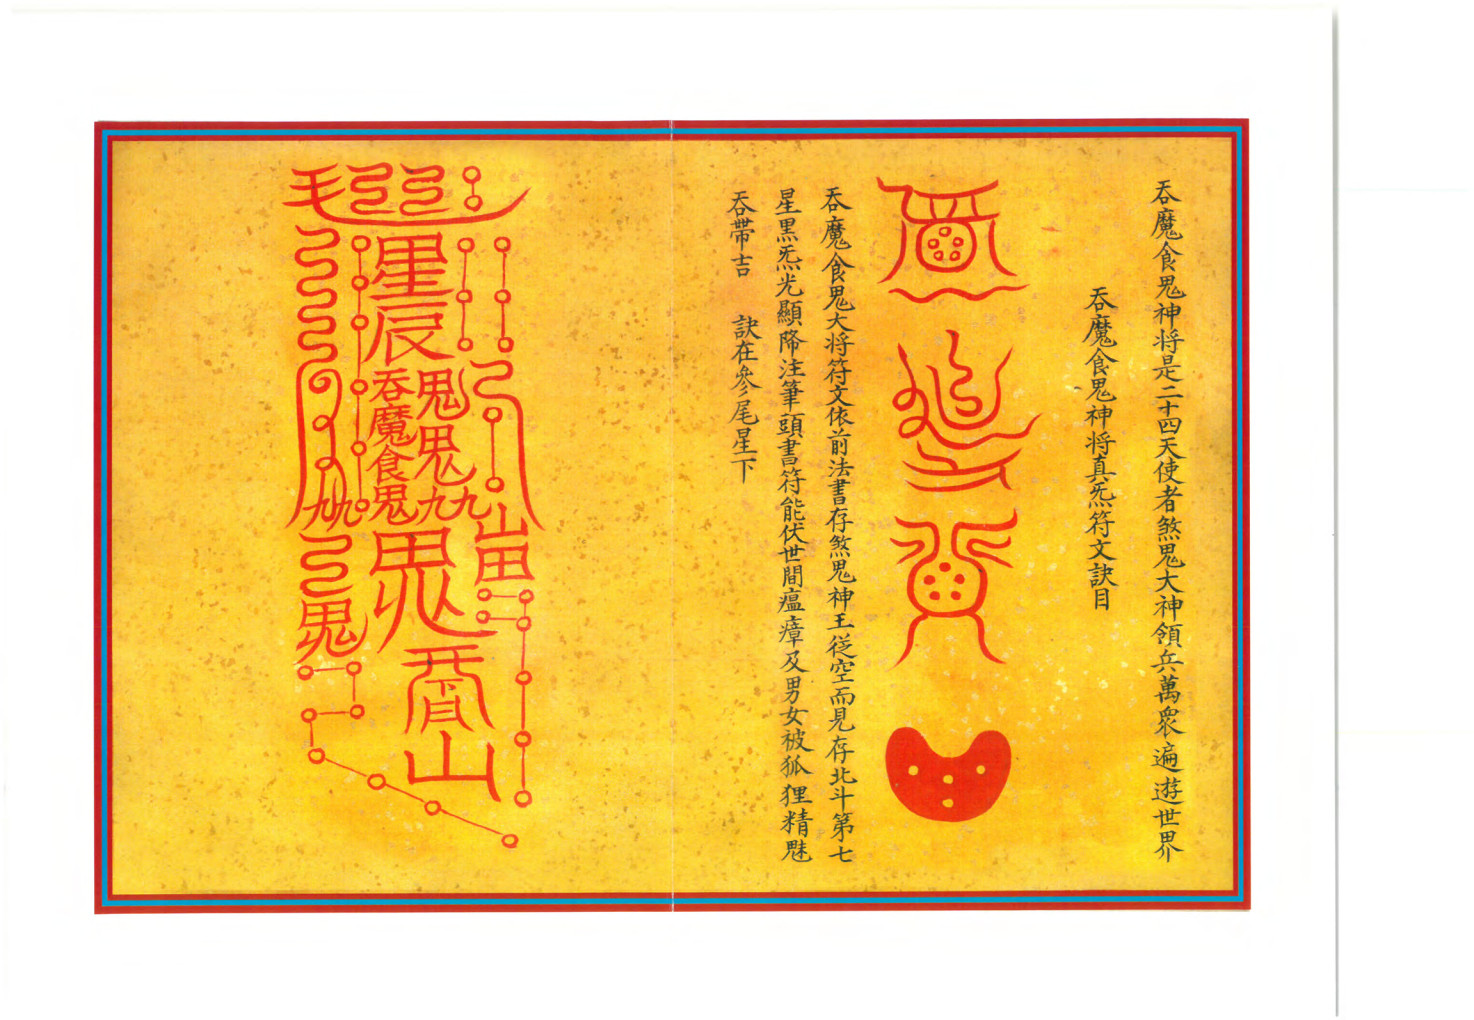 吞魔食鬼神将是二十四天使者煞鬼大神領兵萬衆遍遊世界
吞魔食鬼神将真炁符文訣目
吞魔食鬼大将符文依前法書存煞鬼神王從空而見存北斗第七
星黑炁光顯降注筆頭書符能伏世間瘟瘴及男女被狐狸精魅
吞帶吉 訣在參尾星下
星辰
鬼鬼
吞魔食鬼
九九
九九
鬼
山田
鬼
山